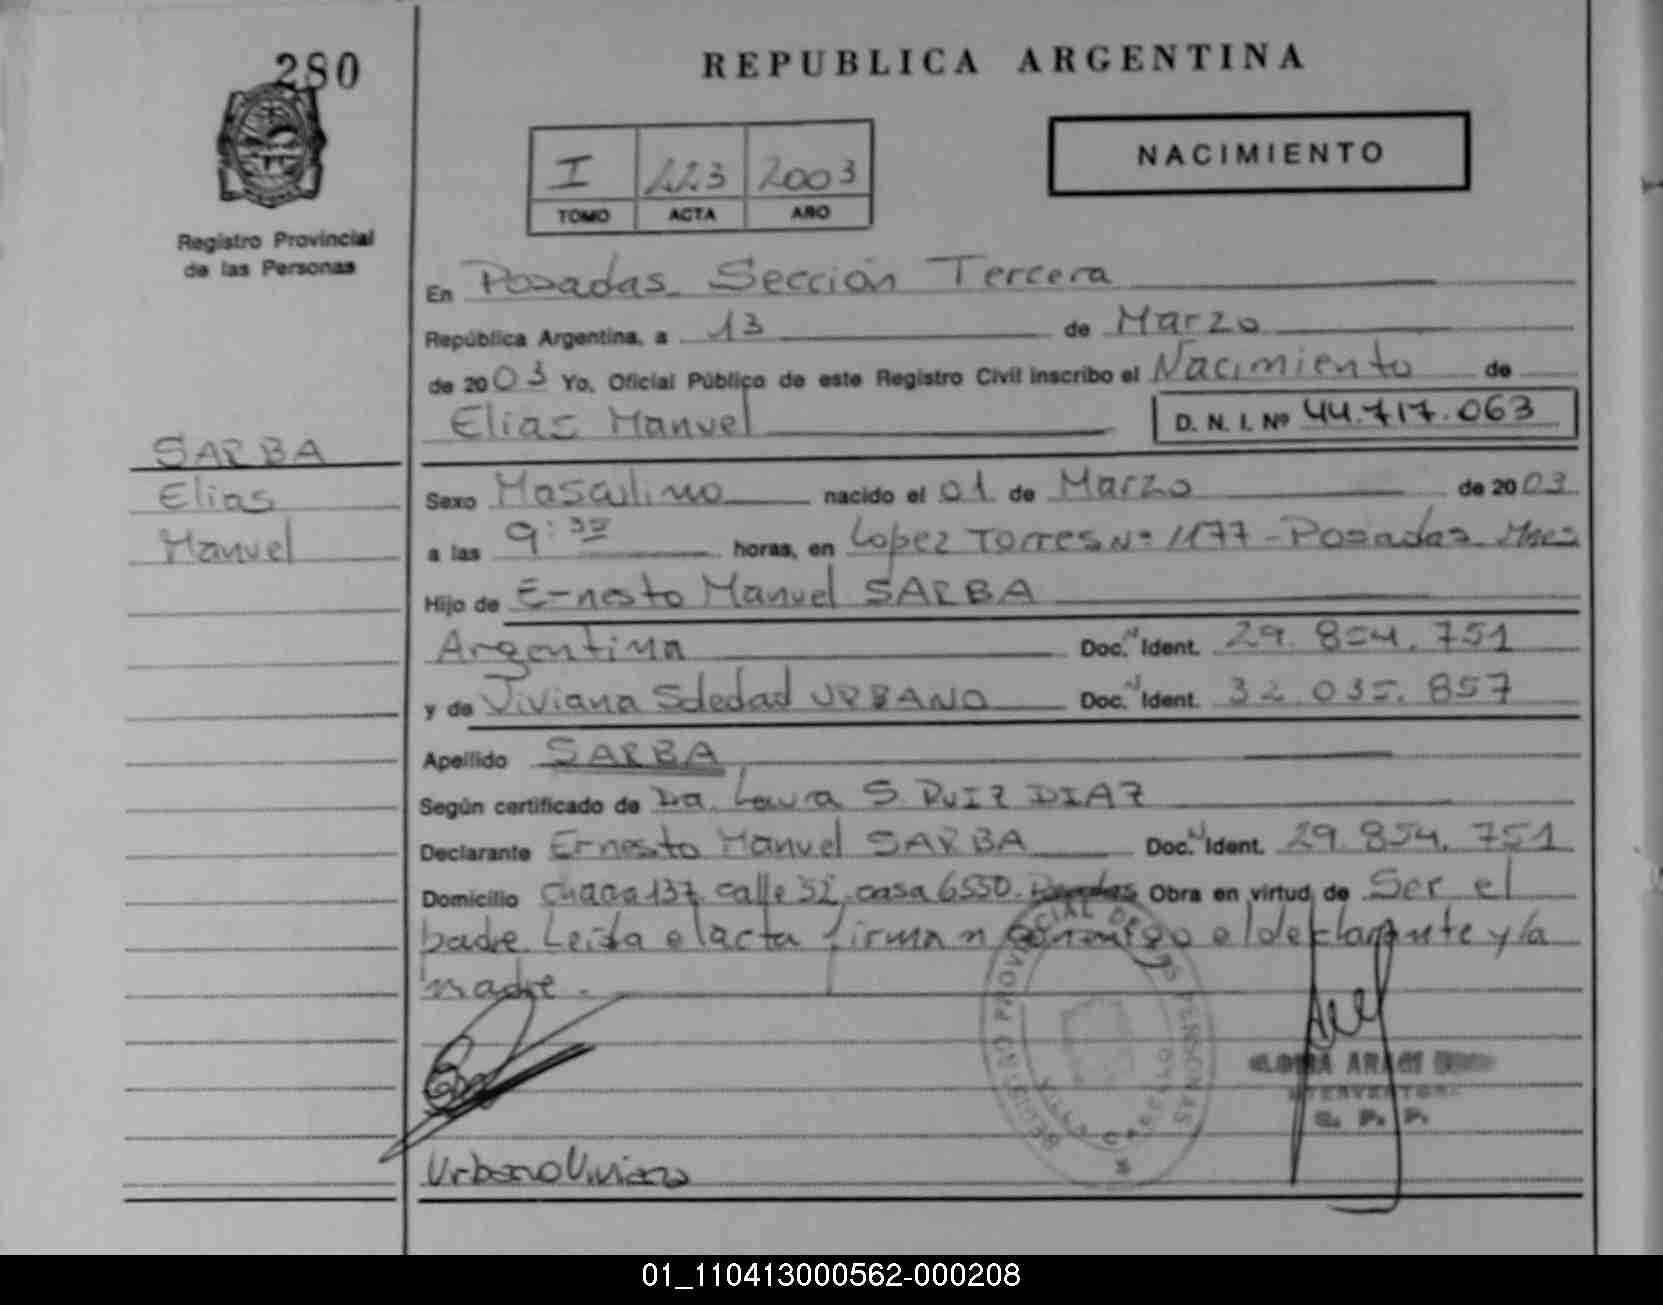 280
REPUBLICA ARGENTINA
Registro Provincial
de las Personas
I 223 2003
TOMO ACTA AÑO
NACIMIENTO
En Posadas Sección Tercera
República Argentina, a 13 de Marzo
de 2003 Yo, Oficial Público de este Registro Civil inscribo el Nacimiento de
Elias Manuel D. N. I. Nº 44.717.063
SARBA
Elias
Manuel
Sexo Masculino nacido el 01 de Marzo de 2003
a las 9:30 horas, en Lopez Torres Nº 1177 - Posadas Mnes
Hijo de Ernesto Manuel SARBA
Argentina Doc. N Ident. 29.854.751
y de Viviana Soledad URBANO Doc. N Ident. 32.035.857
Apellido SARBA
Según certificado de Dra. Laura S. RUIZ DIAZ
Declarante Ernesto Manuel SARBA Doc. N Ident. 29.854.751
Domicilio Chaca 137 calle 52 casa 6550. Posadas Obra en virtud de Ser el
padre. Leida el acta firman conmigo el declarante y la
madre.
REGISTRO PROVINCIAL DE LAS PERSONAS
R. P. P.
Urbano Viviana
01_110413000562-000208